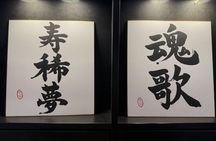 寿稀夢
魂歌